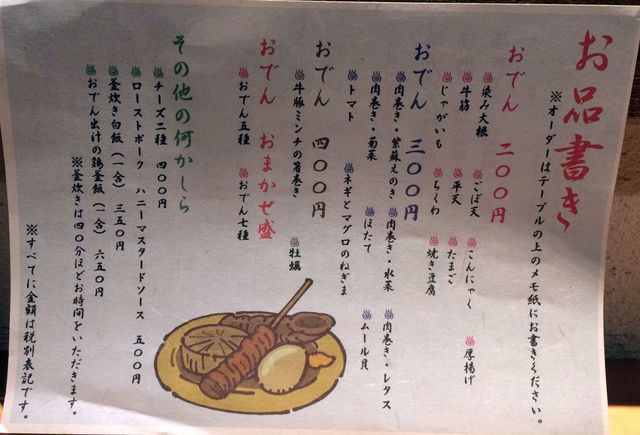 お品書き
※オーダーはテーブルの上のメモ紙にお書きください。
おでん 二〇〇円
染み大根 ごぼ天 こんにゃく 厚揚げ
牛筋 平天 たまご
じゃがいも ちくわ 焼き豆腐
おでん 三〇〇円
肉巻き・紫蘇えのき 肉巻き・水菜 肉巻き・レタス
肉巻き・菊菜 ほたて ムール貝
トマト ネギとマグロのねぎま
おでん 四〇〇円
牛豚ミンチの箸巻き 牡蠣
おでん おまかせ盛
おでん五種 おでん七種
その他の何かしら
チーズ二種 四〇〇円
ローストポーク ハニーマスタードソース 五〇〇円
釜炊き白飯(一合) 三五〇円
おでん出汁の鶏釜飯(一合) 六五〇円
※釜炊きは四〇分ほどお時間をいただきます。
※すべてに金額は税別表記です。